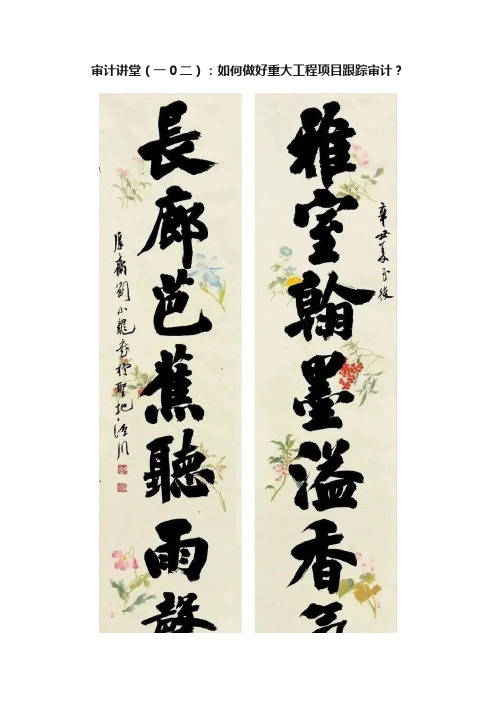 审计讲堂（一0二）：如何做好重大工程项目跟踪审计？
雅室翰墨溢香氣
辛丑夏至後
長廊芭蕉聽雨聲
劉小龍書於聖地